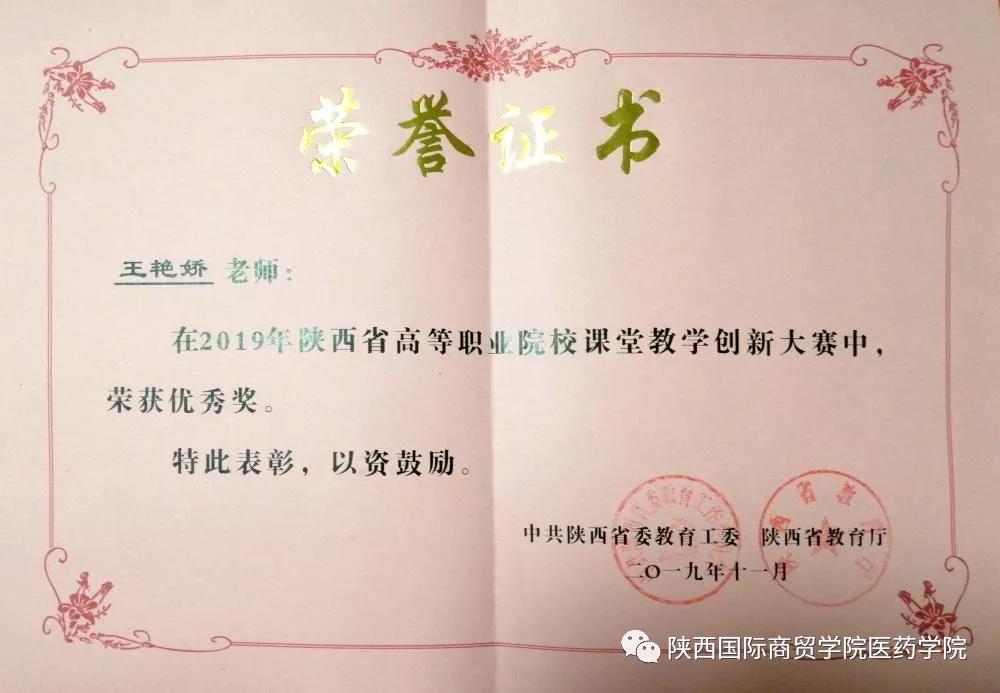 荣誉证书
王艳娇 老师：
在2019年陕西省高等职业院校课堂教学创新大赛中，
荣获优秀奖。
特此表彰，以资鼓励。
中共陕西省委教育工委 陕西省教育厅
二〇一九年十一月
陕西国际商贸学院医药学院